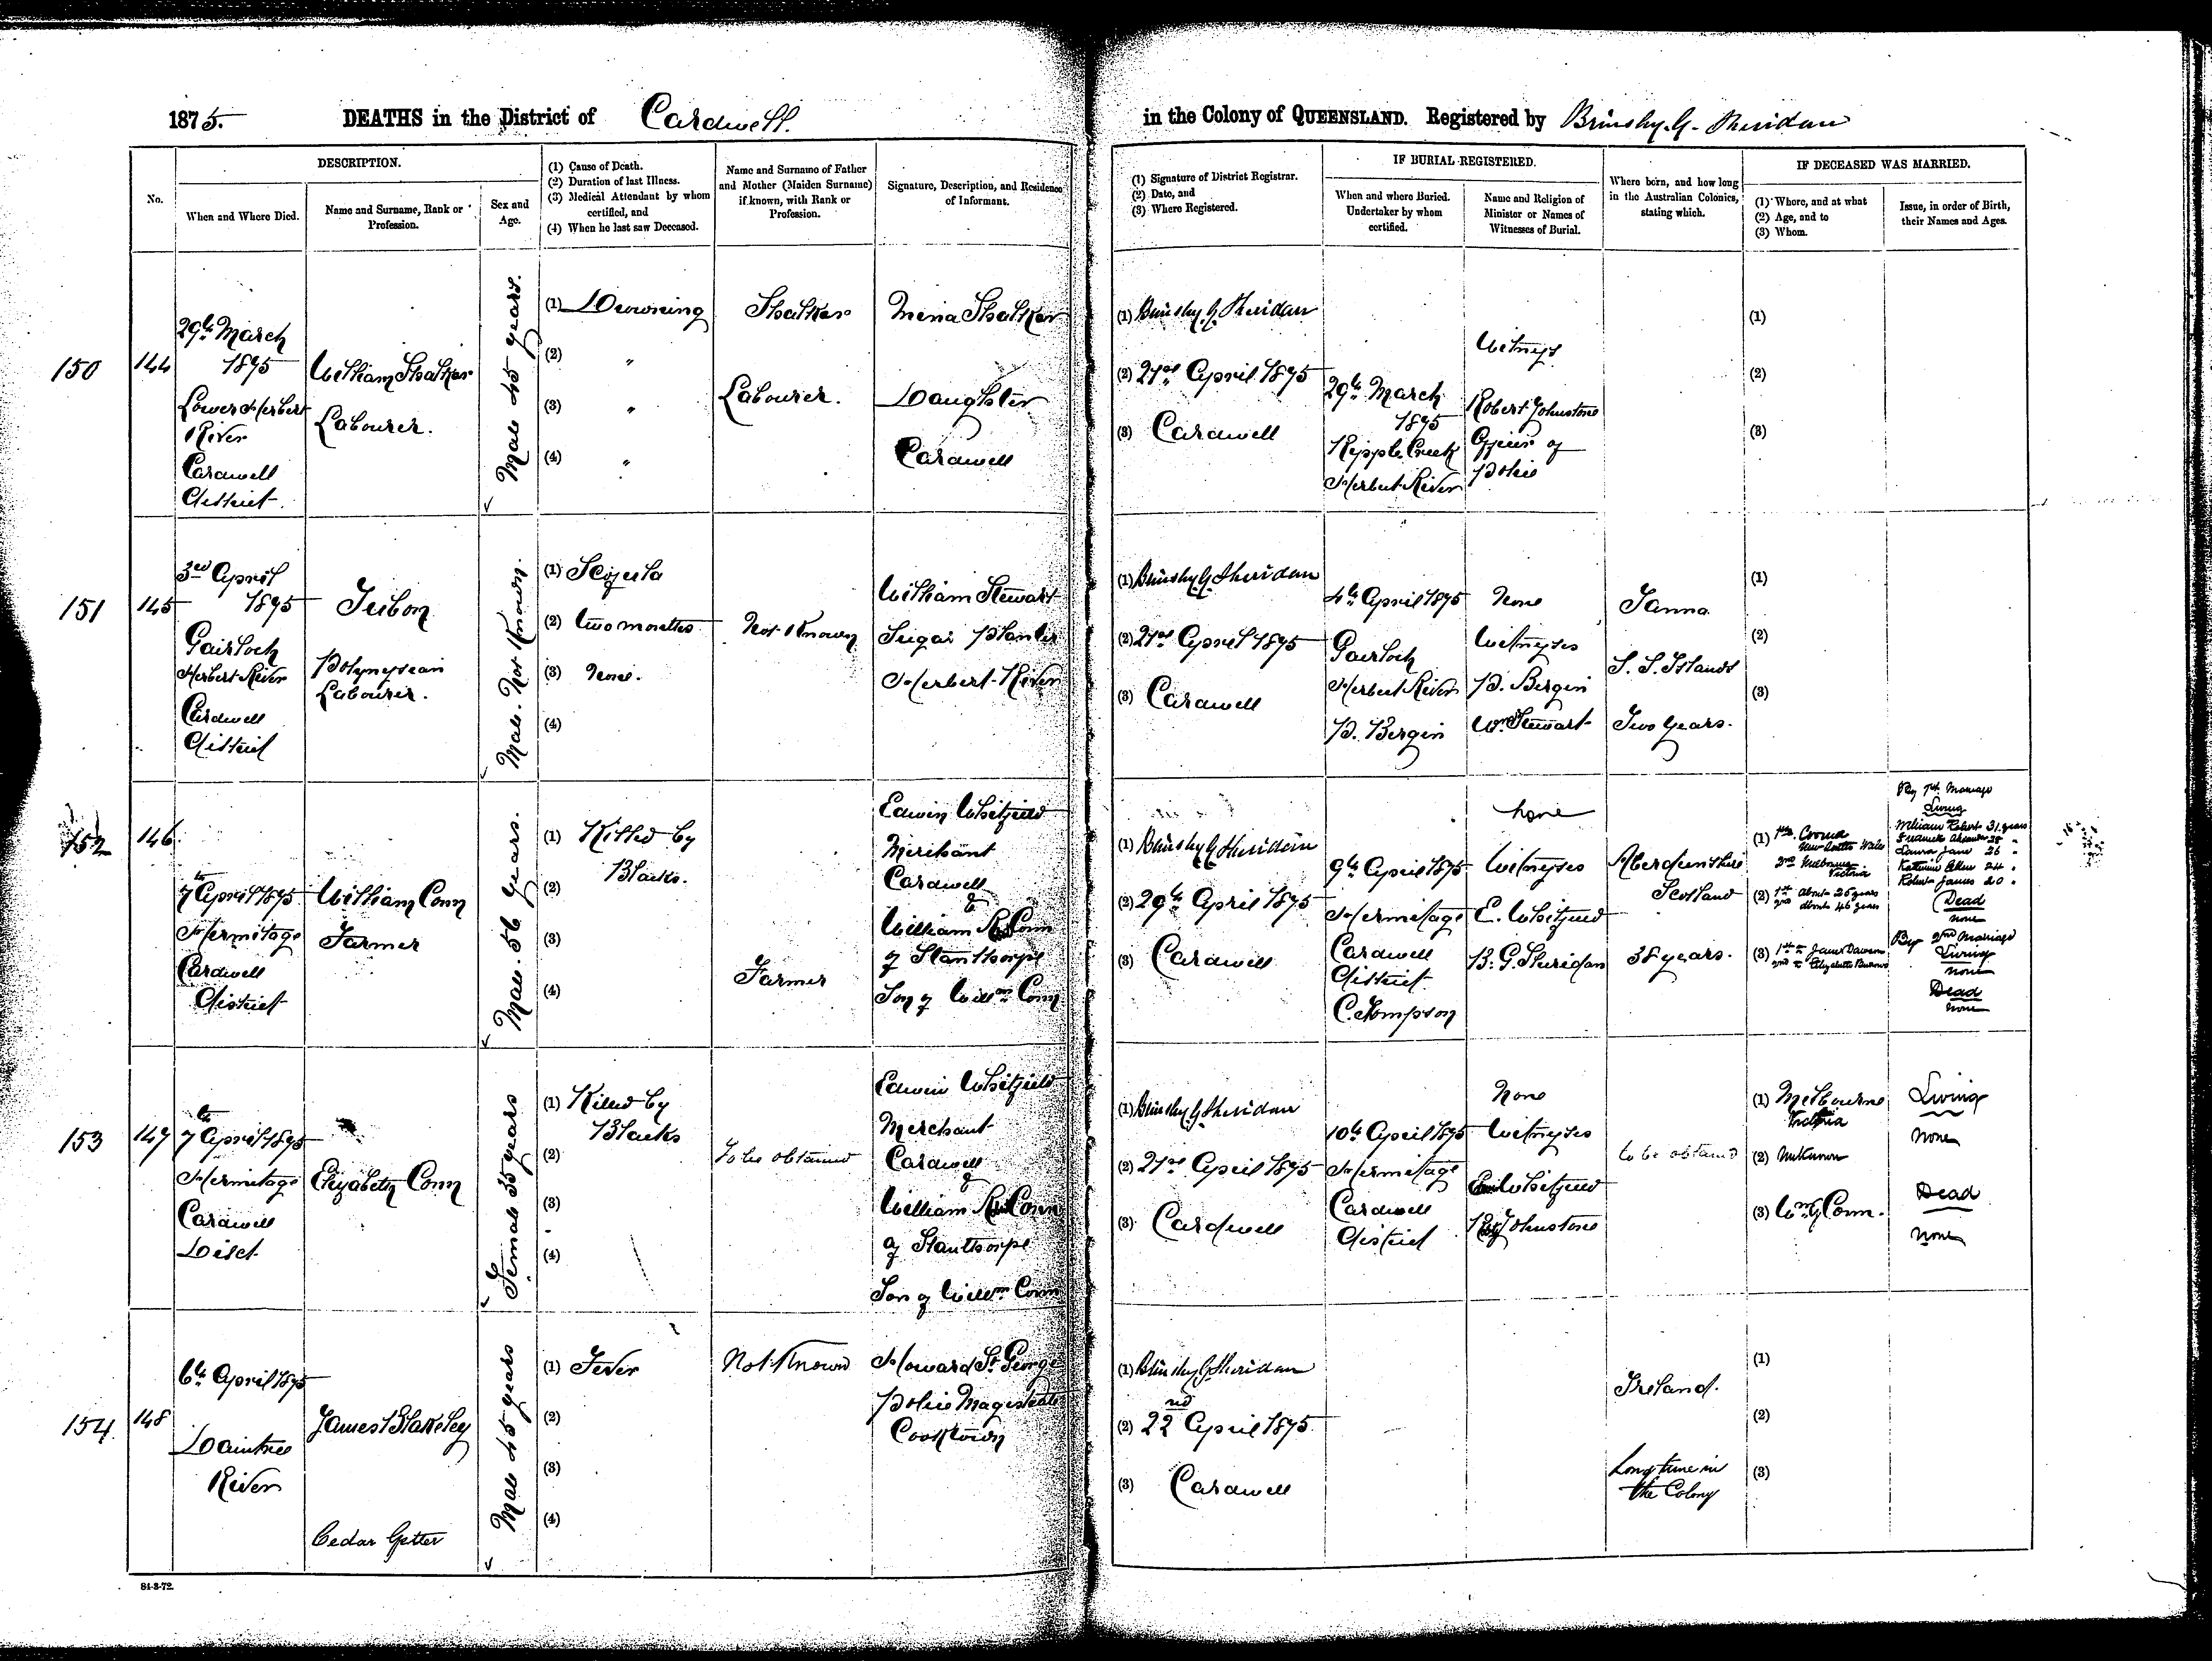 1875. DEATHS in the District of Cardwell.
in the Colony of QUEENSLAND. Registered by Brinsley G. Sheridan
No.
DESCRIPTION.
When and Where Died.
Name and Surname, Rank or Profession.
Sex and Age.
(1) Cause of Death.
(2) Duration of last Illness.
(3) Medical Attendant by whom certified, and
(4) When he last saw Deceased.
Name and Surname of Father and Mother (Maiden Surname) if known, with Rank or Profession.
Signature, Description, and Residence of Informant.
(1) Signature of District Registrar.
(2) Date, and
(3) Where Registered.
IF BURIAL REGISTERED.
When and where Buried. Undertaker by whom certified.
Name and Religion of Minister or Names of Witnesses of Burial.
Where born, and how long in the Australian Colonies, stating which.
IF DECEASED WAS MARRIED.
(1) Where, and at what
(2) Age, and to
(3) Whom.
Issue, in order of Birth, their Names and Ages.
150
144
29th March
1875
Lower Herbert
River
Cardwell
district
William Shalker
Labourer.
Male 45 years.
(1) Drowning
(2) "
(3) "
(4) "
Shalker
Labourer.
Mena Shalker
Daughter
Cardwell
(1) Brinsley G. Sheridan
(2) 21st April 1875
(3) Cardwell
29th March
1875
Ripple Creek
Herbert River
Witness
Robert Johnstone
Officer of
Police
(1)
(2)
(3)
151
145
3rd April
1875
Gairloch
Herbert River
Cardwell
district
Tubon
Polynesian
Labourer.
Male. Not Known.
(1)
(2) two months
(3) None.
(4)
Not Known
William Stewart
Sugar Planter
Herbert River
(1) Brinsley G. Sheridan
(2) 21st April 1875
(3) Cardwell
4th April 1875
Gairloch
Herbert River
P. Bergin
None
Witnesses
P. Bergin
Wm. Stewart
Tanna
S. S. Islands
Two years.
(1)
(2)
(3)
152
146
7th April 1875
Hermitage
Cardwell
district
William Conn
Farmer
Male. 56 years.
(1) Killed by
Blacks.
(2)
(3)
(4)
Farmer
Edwin Whitfield
Merchant
Cardwell
&
William R Conn
of Stanthorpe
Son of Willm Conn
(1) Brinsley G Sheridan
(2) 29th April 1875
(3) Cardwell
9th April 1875
Hermitage
Cardwell
district
C. Thompson
None
Witnesses
E. Whitfield
B. G. Sheridan
Aberdeenshire
Scotland
38 years.
(1) 1st Cooma
New South Wales
2nd Melbourne
Victoria
(2) 1st about 25 years
2nd about 46 years
(3) 1st to Jane Dawson
2nd to Elizabeth Burrows
By 1st Marriage
Living
William Robert 31 years
Alexander 28 "
Laura Jane 26 "
Katherine Ellen 24 "
Robert James 20 "
Dead
none
By 2nd Marriage
Living
none
Dead
none
153
147
7th April 1875
Hermitage
Cardwell
Dist.
Elizabeth Conn
Female 35 years
(1) Killed by
Blacks
(2)
(3)
(4)
To be obtained
Edwin Whitfield
Merchant
Cardwell
&
William R Conn
of Stanthorpe
Son of Willm Conn
(1) Brinsley G Sheridan
(2) 21st April 1875
(3) Cardwell
10th April 1875
Hermitage
Cardwell
district
None
Witnesses
E Whitfield
R Johnstone
to be obtained
(1) Melbourne
Victoria
(2) Unknown
(3) Wm Conn.
Living
None
Dead
none
154
148
6th April 1875
Daintree
River
James Blakeley
Cedar Getter
Male 45 years
(1) Fever
(2)
(3)
(4)
Not Known
Howard St. George
Police Magistrate
Cooktown
(1) Brinsley G Sheridan
(2) 22nd April 1875
(3) Cardwell
Ireland.
Long time in
the Colony
(1)
(2)
(3)
84-3-72.